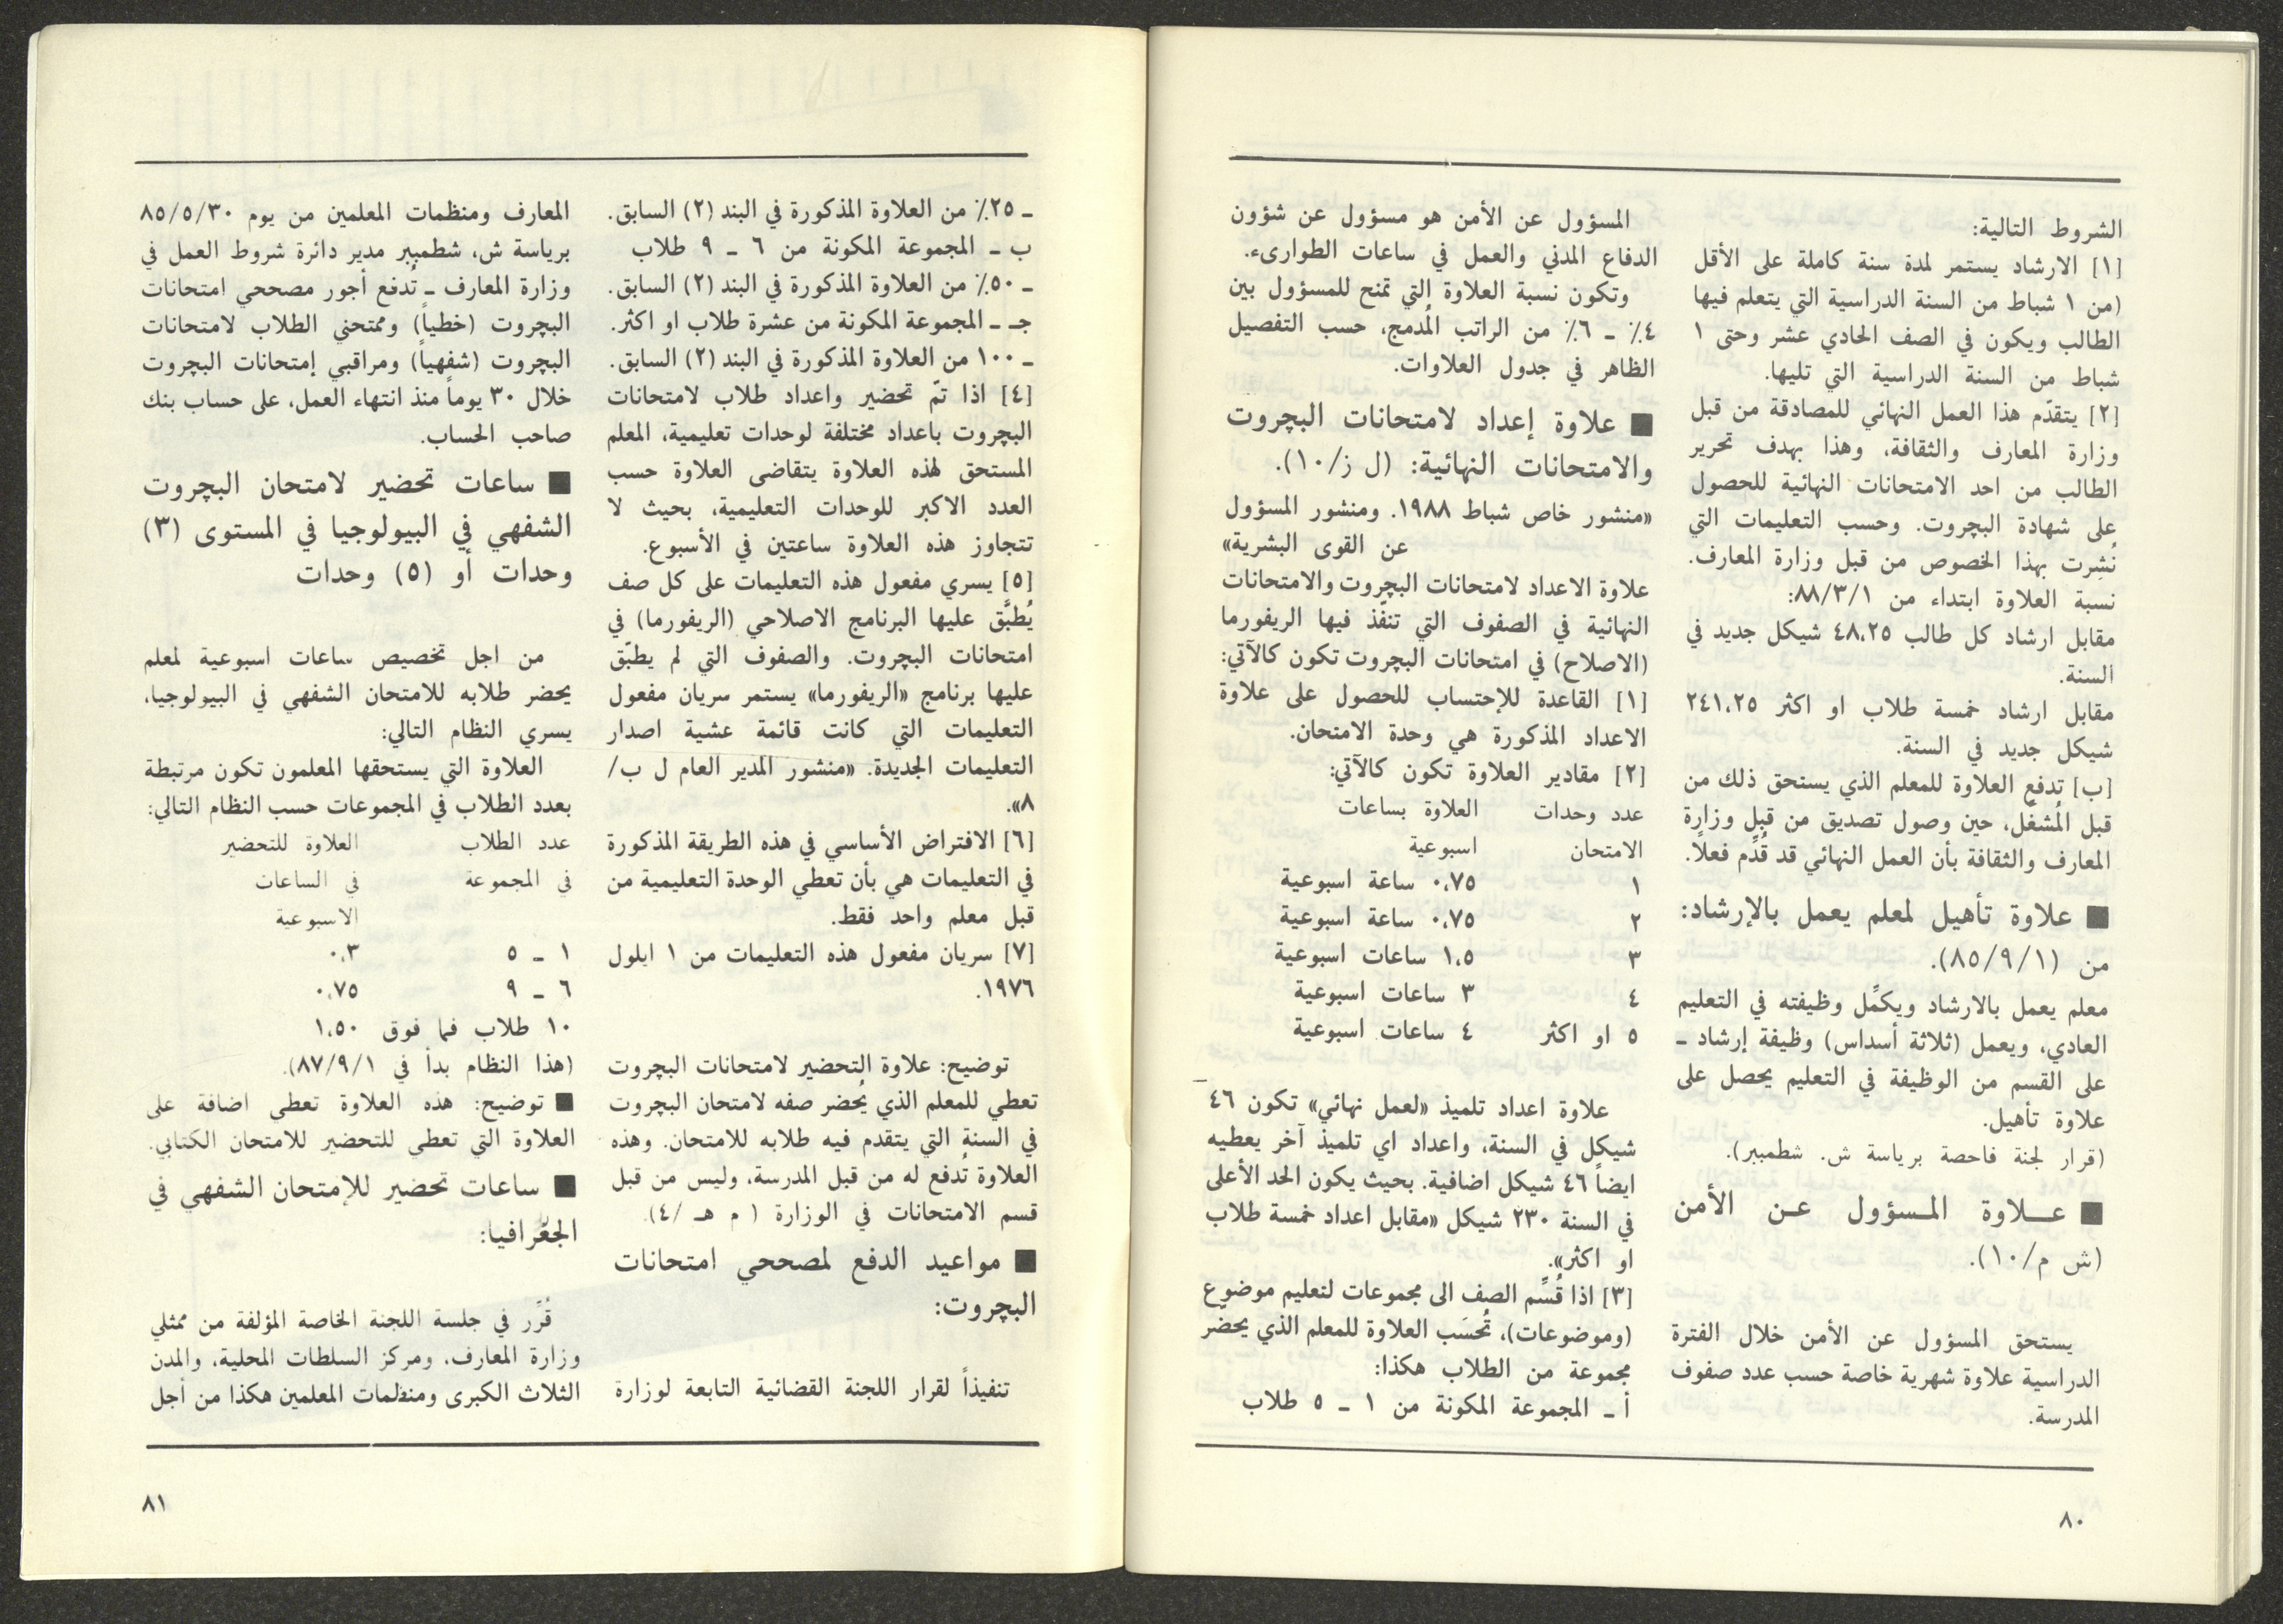 الشروط التالية:
[١] الارشاد يستمر لمدة سنة كاملة على الأقل
(من ١ شباط من السنة الدراسية التي يتعلم فيها
الطالب ويكون في الصف الحادي عشر وحتى ١
شباط من السنة الدراسية التي تليها.
[٢] يتقدّم هذا العمل النهائي للمصادقة من قبل
وزارة المعارف والثقافة، وهذا بهدف تحرير
الطالب من احد الامتحانات النهائية للحصول
على شهادة البچروت. وحسب التعليمات التي
نُشِرت بهذا الخصوص من قبل وزارة المعارف.
نسبة العلاوة ابتداء من ٨٨/٣/١:
مقابل ارشاد كل طالب ٤٨،٢٥ شيكل جديد في
السنة.
مقابل ارشاد خمسة طلاب او اكثر ٢٤١،٢٥
شيكل جديد في السنة.
[ب] تدفع العلاوة للمعلم الذي يستحق ذلك من
قبل المُشغّل، حين وصول تصديق من قبل وزارة
المعارف والثقافة بأن العمل النهائي قد قُدِّم فعلاً.
■ علاوة تأهيل لمعلم يعمل بالإرشاد:
من (٨٥/٩/١).
معلم يعمل بالارشاد ويكمِّل وظيفته في التعليم
العادي، ويعمل (ثلاثة أسداس) وظيفة إرشاد ـ
على القسم من الوظيفة في التعليم يحصل على
علاوة تأهيل.
(قرار لجنة فاحصة برياسة ش. شطمبير).
■ عــلاوة المـسؤول عـن الأمن
(ش م/١٠).
يستحق المسؤول عن الأمن خلال الفترة
الدراسية علاوة شهرية خاصة حسب عدد صفوف
المدرسة.
المسؤول عن الأمن هو مسؤول عن شؤون
الدفاع المدني والعمل في ساعات الطوارىء.
وتكون نسبة العلاوة التي تمنح للمسؤول بين
٤٪ ـ ٦٪ من الراتب المُدمج، حسب التفصيل
الظاهر في جدول العلاوات.
■ علاوة إعداد لامتحانات البچروت
والامتحانات النهائية: (ل ز/١٠).
«منشور خاص شباط ١٩٨٨. ومنشور المسؤول
عن القوى البشرية»
علاوة الاعداد لامتحانات البچروت والامتحانات
النهائية في الصفوف التي تنفّذ فيها الريفورما
(الاصلاح) في امتحانات البچروت تكون كالآتي:
[١] القاعدة للإحتساب للحصول على علاوة
الاعداد المذكورة هي وحدة الامتحان.
[٢] مقادير العلاوة تكون كالآتي:
عدد وحدات العلاوة بساعات
الامتحان اسبوعية
١ ٠،٧٥ ساعة اسبوعية
٢ ٠،٧٥ ساعة اسبوعية
٣ ١،٥ ساعات اسبوعية
٤ ٣ ساعات اسبوعية
٥ او اكثر ٤ ساعات اسبوعية
علاوة اعداد تلميذ «لعمل نهائي» تكون ٤٦
شيكل في السنة، واعداد اي تلميذ آخر يعطيه
ايضاً ٤٦ شيكل اضافية. بحيث يكون الحد الأعلى
في السنة ٢٣٠ شيكل «مقابل اعداد خمسة طلاب
او اكثر».
[٣] اذا قُسِّم الصف الى مجموعات لتعليم موضوع
(وموضوعات)، تُحسَب العلاوة للمعلم الذي يحضّر
مجموعة من الطلاب هكذا:
أ ـ المجموعة المكونة من ١ ـ ٥ طلاب
٨٠
ـ ٢٥٪ من العلاوة المذكورة في البند (٢) السابق.
ب ـ المجموعة المكونة من ٦ ـ ٩ طلاب
ـ ٥٠٪ من العلاوة المذكورة في البند (٢) السابق.
جـ ـ المجموعة المكونة من عشرة طلاب او اكثر.
ـ ١٠٠ من العلاوة المذكورة في البند (٢) السابق.
[٤] اذا تمّ تحضير واعداد طلاب لامتحانات
البچروت باعداد مختلفة لوحدات تعليمية، المعلم
المستحق لهذه العلاوة يتقاضى العلاوة حسب
العدد الاكبر للوحدات التعليمية، بحيث لا
تتجاوز هذه العلاوة ساعتين في الأسبوع.
[٥] يسري مفعول هذه التعليمات على كل صف
يُطبَّق عليها البرنامج الاصلاحي (الريفورما) في
امتحانات البچروت. والصفوف التي لم يطبّق
عليها برنامج «الريفورما» يستمر سريان مفعول
التعليمات التي كانت قائمة عشية اصدار
التعليمات الجديدة. «منشور المدير العام ل ب/
٨».
[٦] الافتراض الأساسي في هذه الطريقة المذكورة
في التعليمات هي بأن تعطي الوحدة التعليمية من
قبل معلم واحد فقط.
[٧] سريان مفعول هذه التعليمات من ١ ايلول
١٩٧٦.
توضيح: علاوة التحضير لامتحانات البچروت
تعطي للمعلم الذي يُحضر صفه لامتحان البچروت
في السنة التي يتقدم فيه طلابه للامتحان. وهذه
العلاوة تُدفع له من قبل المدرسة، وليس من قبل
قسم الامتحانات في الوزارة ( م هـ /٤).
■ مواعيد الدفع لمصححي امتحانات
البچروت:
تنفيذاً لقرار اللجنة القضائية التابعة لوزارة
المعارف ومنظمات المعلمين من يوم ٨٥/٥/٣٠
برياسة ش، شطمبير مدير دائرة شروط العمل في
وزارة المعارف ـ تُدفع أجور مصححي امتحانات
البچروت (خطياً) وممتحني الطلاب لامتحانات
البچروت (شفهياً) ومراقبي إمتحانات البچروت
خلال ٣٠ يوماً منذ انتهاء العمل، على حساب بنك
صاحب الحساب.
■ ساعات تحضير لامتحان البچروت
الشفهي في البيولوجيا في المستوى (٣)
وحدات أو (٥) وحدات
من اجل تخصيص ساعات اسبوعية لمعلم
يحضر طلابه للامتحان الشفهي في البيولوجيا،
يسري النظام التالي:
العلاوة التي يستحقها المعلمون تكون مرتبطة
بعدد الطلاب في المجموعات حسب النظام التالي:
عدد الطلاب العلاوة للتحضير
في المجموعة في الساعات
الاسبوعية
١ ـ ٥ ٠،٣
٦ ـ ٩ ٠،٧٥
١٠ طلاب فما فوق ١،٥٠
(هذا النظام بدأ في ٨٧/٩/١).
■ توضيح: هذه العلاوة تعطي اضافة على
العلاوة التي تعطي للتحضير للامتحان الكتابي.
■ ساعات تحضير للإمتحان الشفهي في
الجغرافيا:
قُرِّر في جلسة اللجنة الخاصة المؤلفة من ممثلي
وزارة المعارف، ومركز السلطات المحلية، والمدن
الثلاث الكبرى ومنظمات المعلمين هكذا من أجل
٨١